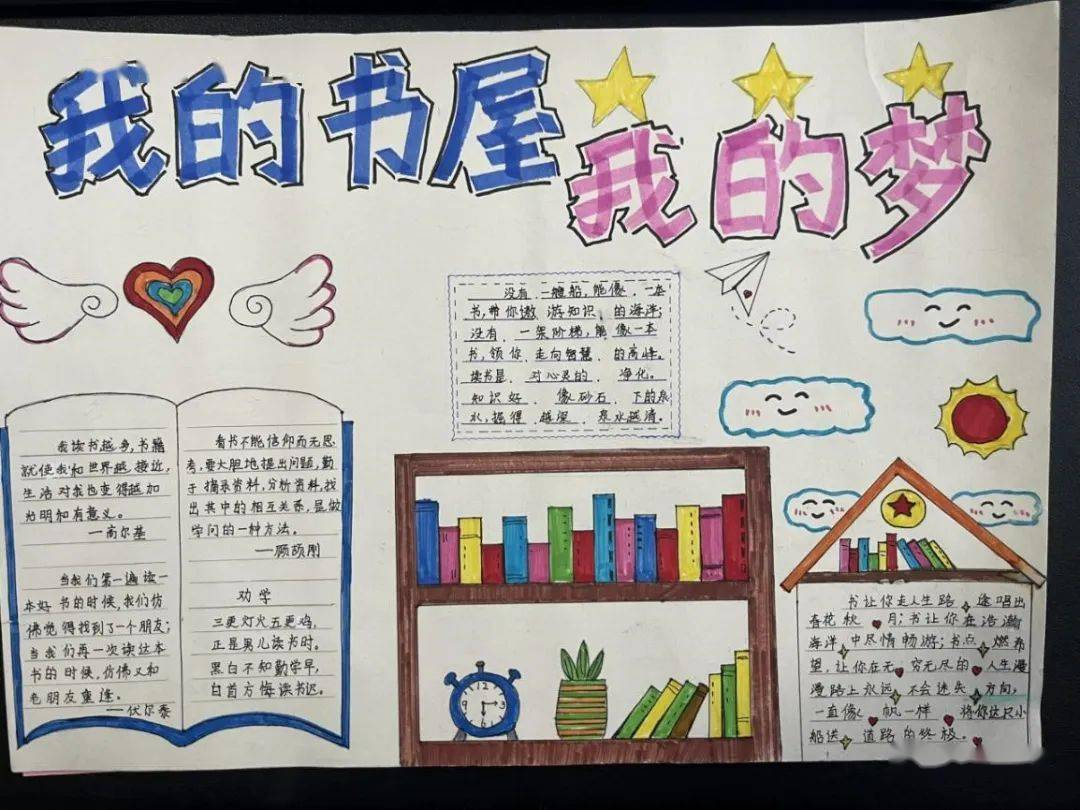 我的书屋
我的梦
没有一艘船,能像一本
书,带你遨游知识的海洋;
没有一条阶梯,能像一本
书,领你走向智慧的高峰。
读书是对心灵的净化。
知识好像砂石下的泉
水,掘得越深泉水越清。
我读书越多,书籍
就使我和世界越接近,
生活对我也变得越加
光明和有意义。
—高尔基
当我们第一遍读一
本好书的时候,我们仿
佛觉得找到了一个朋友;
当我们再一次读这本
书的时候,仿佛又和
老朋友重逢。
—伏尔泰
看书不能信仰而无思
考,要大胆地提出问题,勤
于摘录资料,分析资料,找
出其中的相互关系,是做
学问的一种方法。
—顾颉刚
劝学
三更灯火五更鸡,
正是男儿读书时。
黑白不知勤学早,
白首方悔读书迟。
12
3
6
9
书让你走人生路途唱出
春花秋月;书让你在浩瀚
海洋中尽情畅游;书点燃希
望,让你在无穷无尽的人生漫
漫路上永远不会迷失方向,
一直像帆一样将你这只小
船送道路的终极。